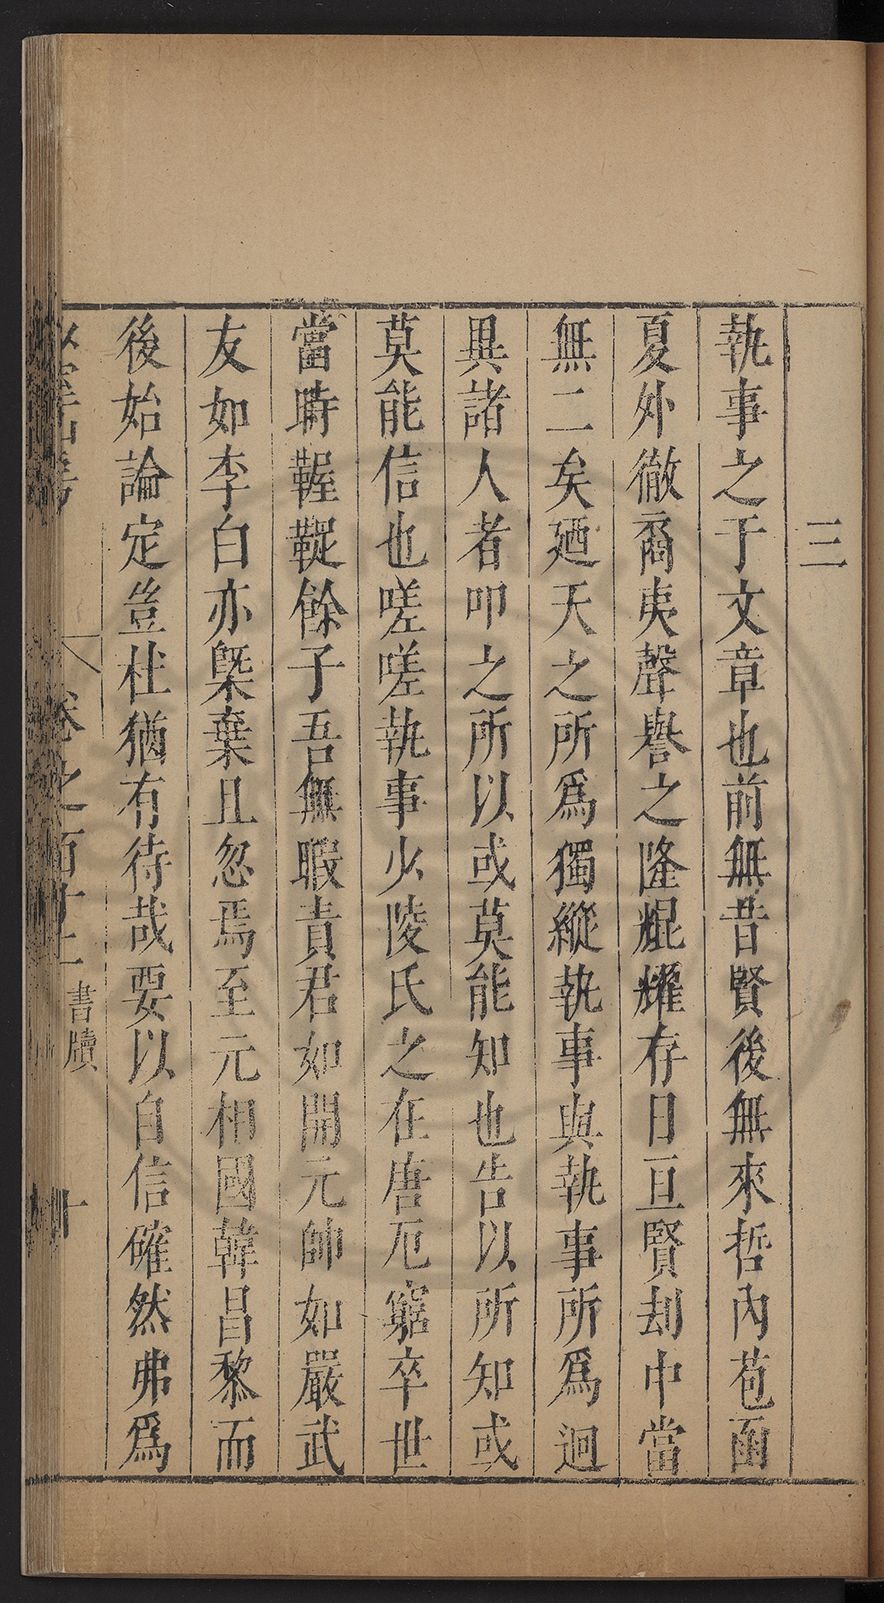 三
執事之于文章也前無昔賢後無來哲內苞函
夏外徹裔夷聲譽之隆焜耀存日亘賢刦中當
無二矣廼天之所爲獨縱執事與執事所爲迥
異諸人者叩之所以或莫能知也告以所知或
莫能信也嗟嗟執事少陵氏之在唐厄窮卒世
當時齷齪餘子吾無暇責君如開元帥如嚴武
友如李白亦槩棄且忽焉至元相國韓昌黎而
後始論定豈杜猶有待哉要以自信確然弗爲
卷之百十二 書牘 十